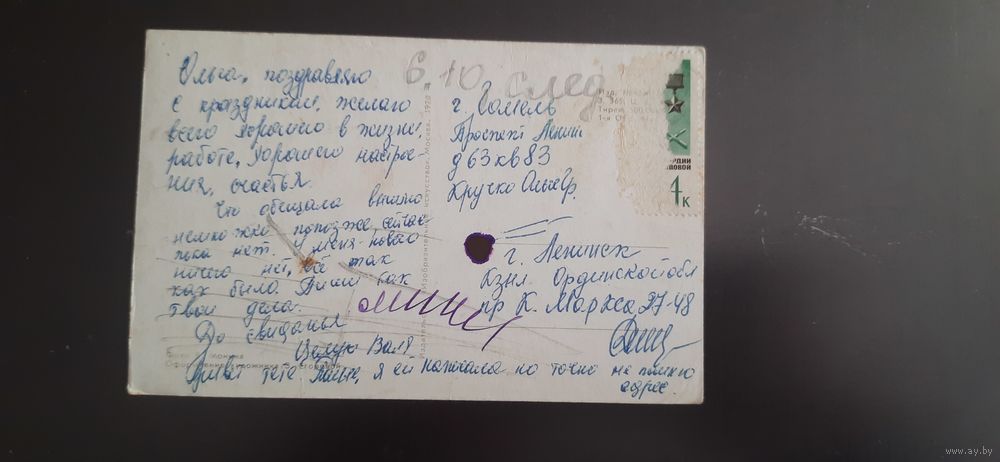 Ольга, поздравляю
с праздником, желаю
всего хорошего в жизни,
работе, хорошего настрое-
ния, счастья.
Что обещала вышлю
немножко попозже, сейчас
пока нет. У меня нового
ничего нет, всё так
как было. Пиши как
твои дела.
До свиданья
Валя.
Привет тёте, я ей написала но точно не помню
адрес.
6.10 след
г. Гомель
Проспект Ленина
д 63 кв 83
Кручко Ольге Гр.
г. Ленинск
Кзыл. Ординской обл
пр К. Маркса 27-48
4 к
www.ay.by